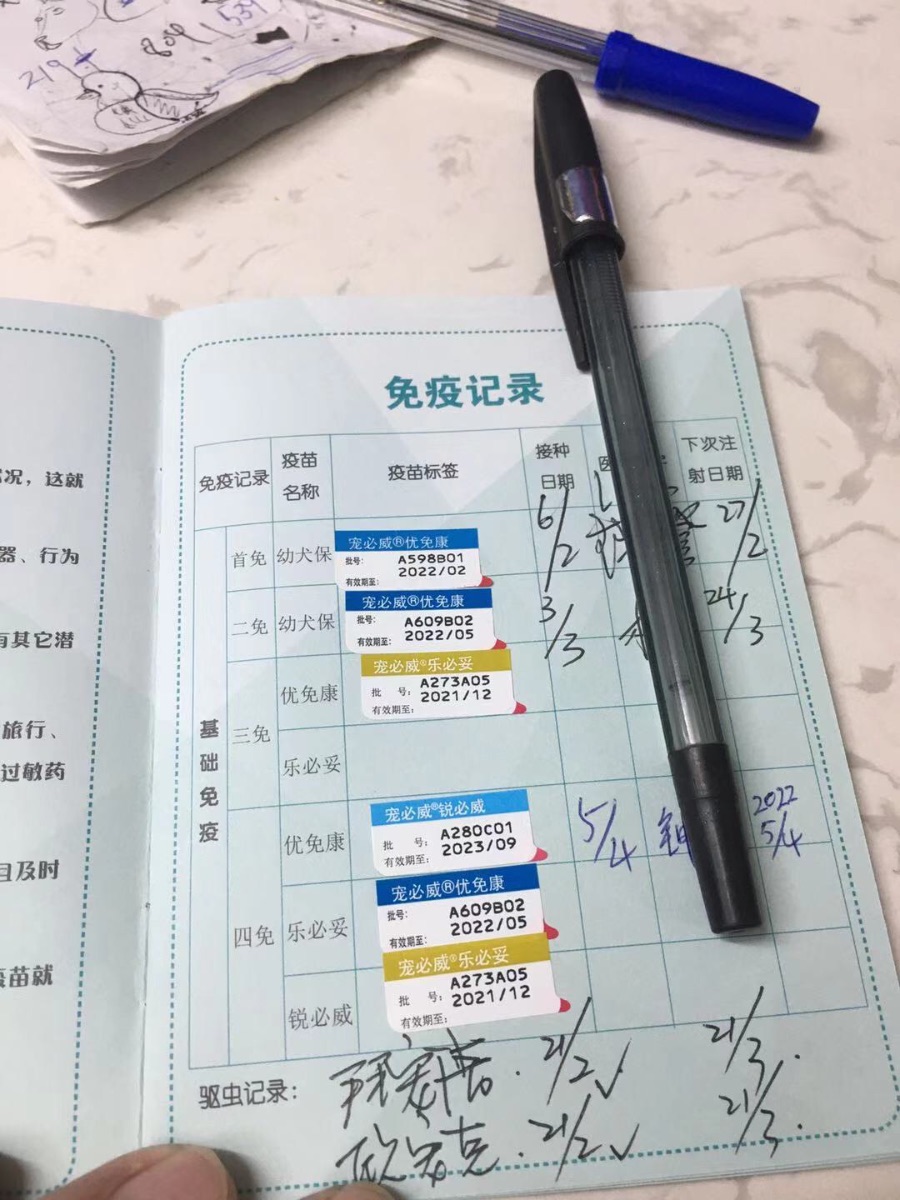 219
804
539
况，这就
器、行为
有其它潜
旅行、
过敏药
且及时
疫苗就
免疫记录
免疫记录 疫苗名称 疫苗标签 接种日期 医 下次注射日期
基础免疫
首免 幼犬保 宠必威®优免康 6/2 27/2
批号: A598B01
有效期至: 2022/02
二免 幼犬保 宠必威®优免康 3/3 24/3
批号: A609B02
有效期至: 2022/05
三免 优免康 宠必威®乐必妥
批 号: A273A05
有效期至: 2021/12
乐必妥
四免 优免康 宠必威®锐必威 5/4 2022 5/4
批 号: A280C01
有效期至: 2023/09
乐必妥 宠必威®优免康
批号: A609B02
有效期至: 2022/05
锐必威 宠必威®乐必妥
批 号: A273A05
有效期至: 2021/12
驱虫记录: 21/2 ✓ 21/3.
21/2 ✓ 21/3.